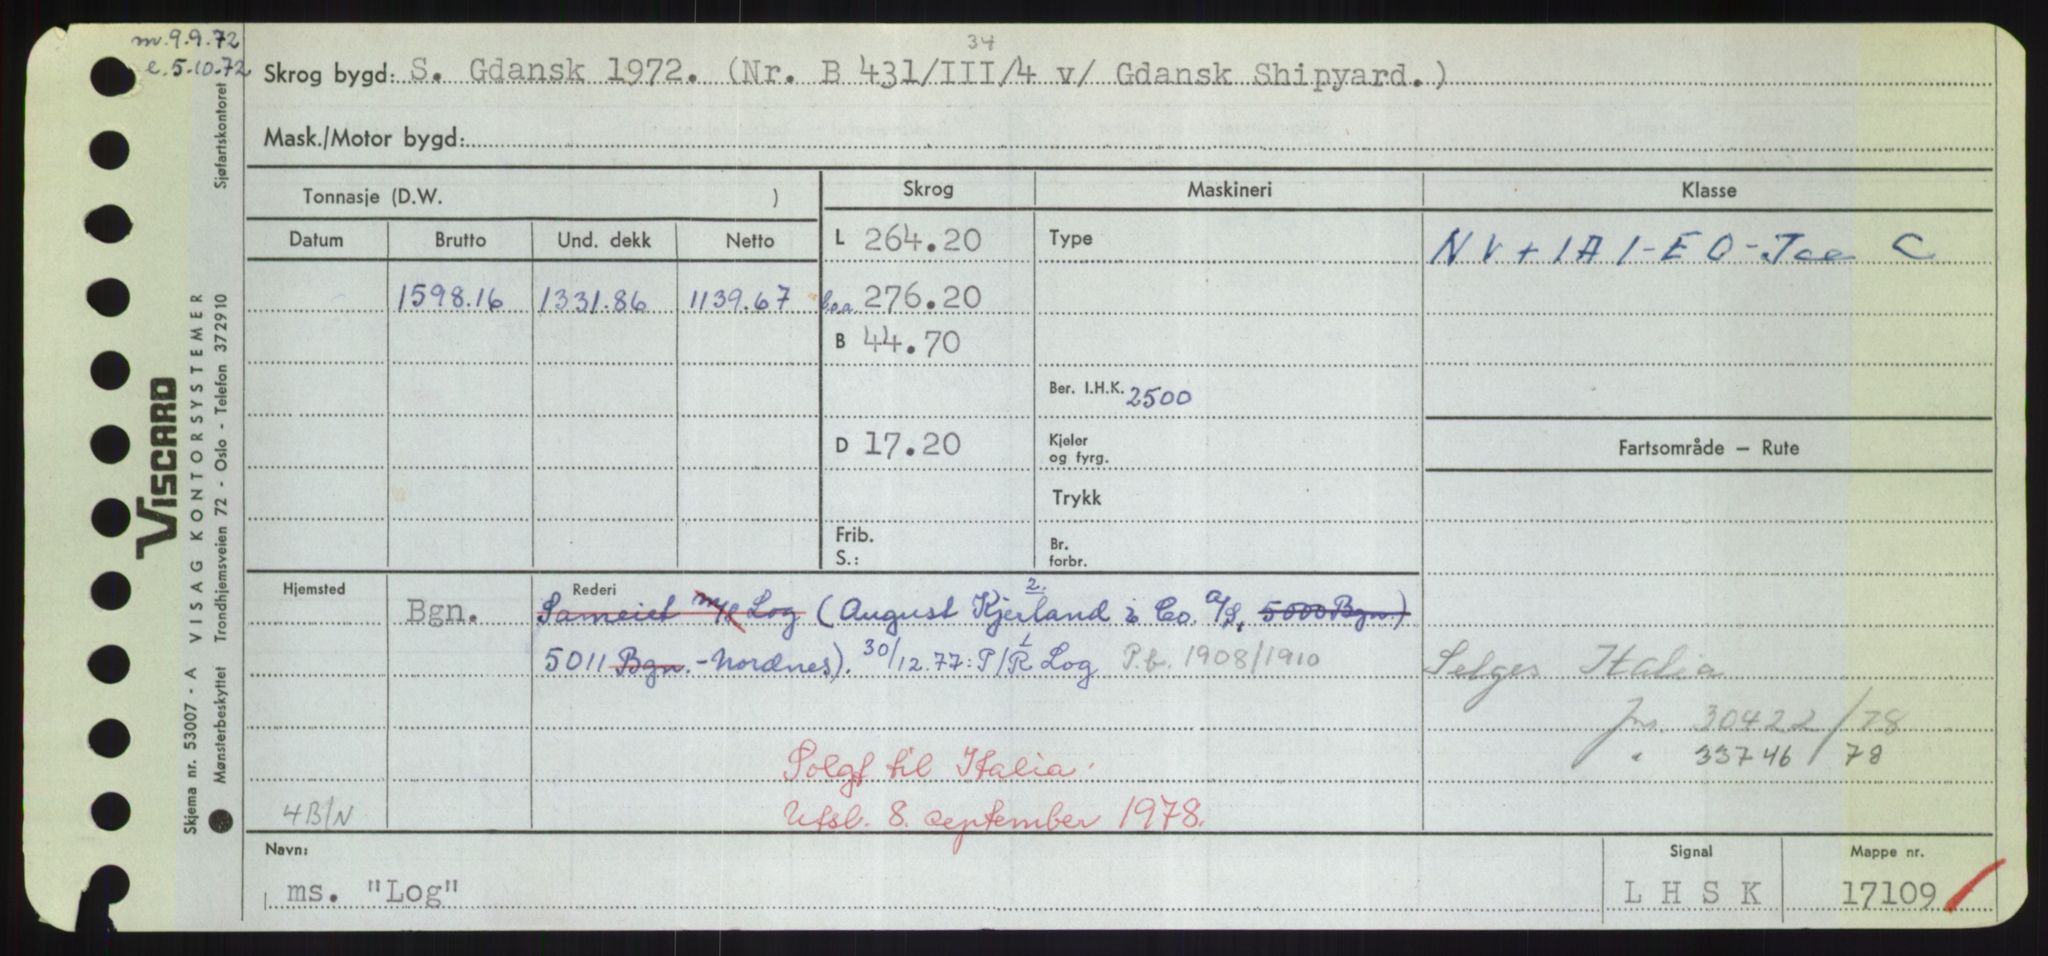 m. 9.9.72
e. 5.10.72
34
Skrog bygd: S. Gdansk 1972. (Nr. B 431/III/4 v/ Gdansk Shipyard.)
Mask./Motor bygd:
Tonnasje (D.W. )
Skrog Maskineri Klasse
Datum Brutto Und. dekk Netto
L 264.20 Type NV + 1A1-EO-Ice C
1598.16 1331.86 1139.67 Loa 276.20
B 44.70
Ber. I.H.K. 2500
D 17.20 Kjeler og fyrg.
Fartsområde – Rute
Trykk
Frib. S.: Br. forbr.
Hjemsted Rederi
2.
Bgn. Sameiet m/s Log (August Kjerland & Co. A/S, 5000 Bgn.)
1
5011 Bgn.-Nordnes). 30/12.77: P/R Log P.b. 1908/1910
Selges Italia
jnr. 30422/78
" 33746/78
Solgt til Italia.
4B/N Utsl. 8. september 1978.
Navn: Signal Mappe nr.
ms. "Log" LHSK 17109
VISCARD
Skjema nr. 53007 - A VISAG KONTORSYSTEMER
Mønsterbeskyttet Trondhjemsveien 72 - Oslo - Telefon 372910 Sjøfartskontoret